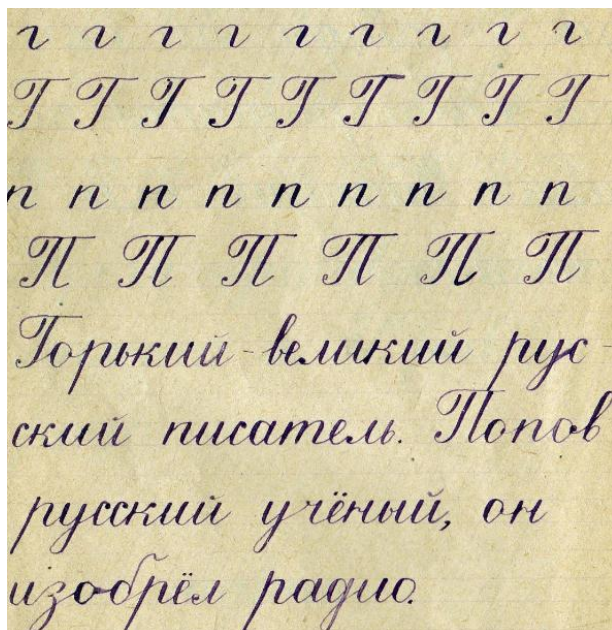 г г г г г г г г г
Г Г Г Г Г Г Г Г Г
п п п п п п п п п
П П П П П П
Горький - великий рус-
ский писатель. Попов
русский учёный, он
изобрёл радио.